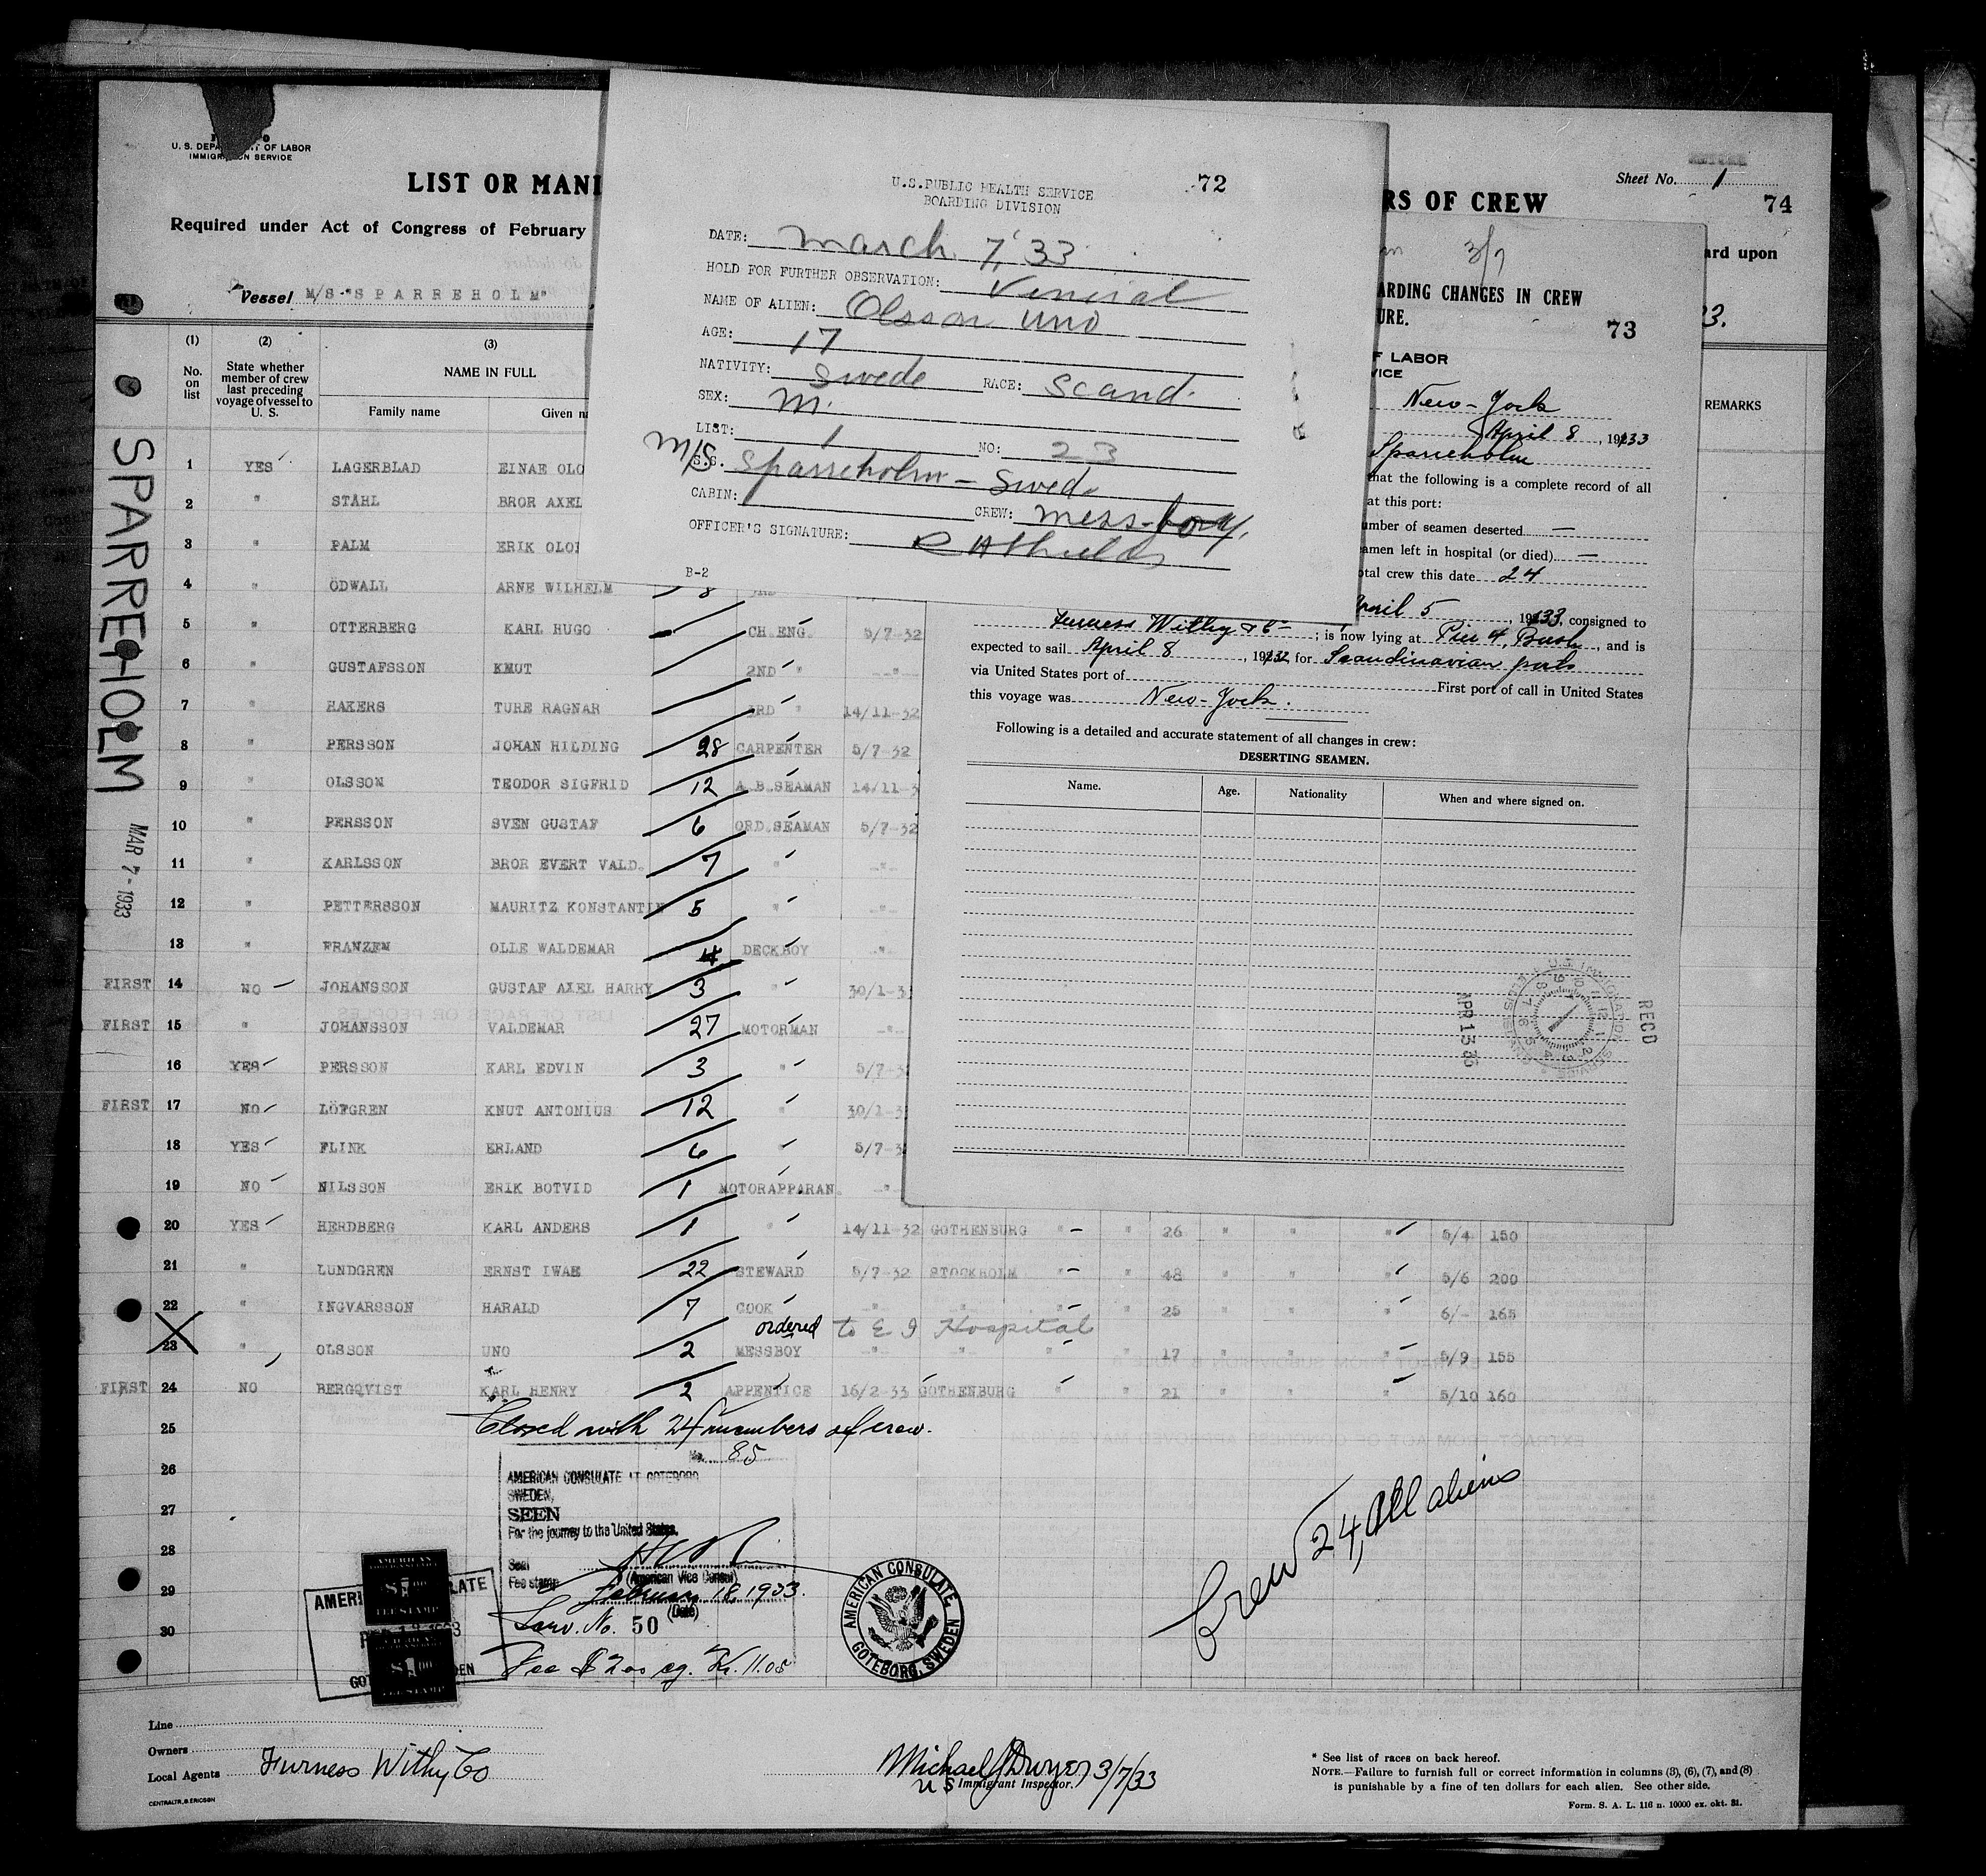 U. S. DEPARTMENT OF LABOR
IMMIGRATION SERVICE
LIST OR MANI
Required under Act of Congress of February
Vessel M/S "SPARREHOLM"
RS OF CREW
Sheet No. 1
74
ard upon
3.
REMARKS
U.S. PUBLIC HEALTH SERVICE
72
BOARDING DIVISION
DATE: March 7, '33
HOLD FOR FURTHER OBSERVATION: Veneral
NAME OF ALIEN: Olsson Uno
AGE: 17
NATIVITY: Swede RACE: Scand.
SEX: M.
LIST: 1 NO: 23
M/S S.S. Sparreholm - Swed.
CABIN: CREW: mess-boy.
OFFICER'S SIGNATURE:
B-2
3/7
ARDING CHANGES IN CREW
URE.
73
F LABOR
VICE
New-York
April 8, 1933
Sparreholm
that the following is a complete record of all
at this port:
umber of seamen deserted —
amen left in hospital (or died) —
otal crew this date 24
April 5, 1933, consigned to
Furness Withy & Co ; is now lying at Pier 4, Bush, and is
expected to sail April 8, 1932, for Scandinavian ports
via United States port of First port of call in United States
this voyage was New-York.
Following is a detailed and accurate statement of all changes in crew:
DESERTING SEAMEN.
Name. Age. Nationality When and where signed on.
RECD
U.S. IMMIGRATION SERVICE
APR 13 33
SPARREHOLM
MAR 7 - 1933
(1) (2) (3)
No. on list
State whether member of crew last preceding voyage of vessel to U. S.
NAME IN FULL
Family name Given na
1 YES LAGERBLAD EINAE OLO
2 " STÅHL BROR AXEL
3 " PALM ERIK OLO
4 " ÖDWALL ARNE WILHELM 8
5 " OTTERBERG KARL HUGO CH.ENG. 5/7-32
6 " GUSTAFSSON KNUT 2ND " -"-
7 " HAKERS TURE RAGNAR 3RD " 14/11-32
8 " PERSSON JOHAN HILDING 28 CARPENTER 5/7-32
9 " OLSSON TEODOR SIGFRID 12 A.B.SEAMAN 14/11-3
10 " PERSSON SVEN GUSTAF 6 ORD.SEAMAN 5/7-32
11 " KARLSSON BROR EVERT VALD. 7 " -"-
12 " PETTERSSON MAURITZ KONSTANTIN 5 " -"-
13 " FRANZEM OLLE WALDEMAR 4 DECKBOY -"-
FIRST 14 NO JOHANSSON GUSTAF AXEL HARRY 3 " 30/1-3
FIRST 15 " JOHANSSON VALDEMAR 27 MOTORMAN -"-
16 YES PERSSON KARL EDVIN 3 " 5/7-3
FIRST 17 NO LÖFGREN KNUT ANTONIUS 12 " 30/1-3
18 YES FLINK ERLAND 6 " 5/7-3
19 NO NILSSON ERIK BOTVID 1 MOTORAPPARAN. -"-
20 YES HERDBERG KARL ANDERS 1 " 14/11-32 GOTHENBURG " " 26 " " " 5/4 150
21 " LUNDGREN ERNST IWAE 22 STEWARD 5/7-32 STOCKHOLM " " 48 " " " 5/6 200
22 " INGVARSSON HARALD 7 COOK -"- " " " 25 " " " 6/- 165
ordered to E I Hospital
23 " OLSSON UNO 2 MESSBOY -"- " " " 17 " " " 5/9 155
FIRST 24 NO BERGQVIST KARL HENRY 2 APPENTICE 16/2-33 GOTHENBURG " " 21 " " " 5/10 160
25
Closed with 24 members of crew.
26
27
28
29
30
No. 85
AMERICAN CONSULATE AT GOTEBORG
SWEDEN,
SEEN
For the journey to the United States.
Seal
(American Vice Consul)
Fee stamp
February 18, 1933.
(Date)
Serv. No. 50
Fee $2.00 eq. Kr. 11.05
AMERICAN
$1.00
FEE STAMP
AMERICAN
$1.00
FEE STAMP
AMERICAN CONSULATE
GOTEBORG, SWEDEN
Crew 24, All aliens
Line
Owners
Local Agents Furness Withy Co
CENTRALTR, G. ERICSON
Michael J Dwyer 3/7/33
US Immigrant Inspector.
* See list of races on back hereof.
NOTE.—Failure to furnish full or correct information in columns (3), (6), (7), and (8)
is punishable by a fine of ten dollars for each alien. See other side.
Form. S. A. L. 116 n. 10000 ex. okt. 31.